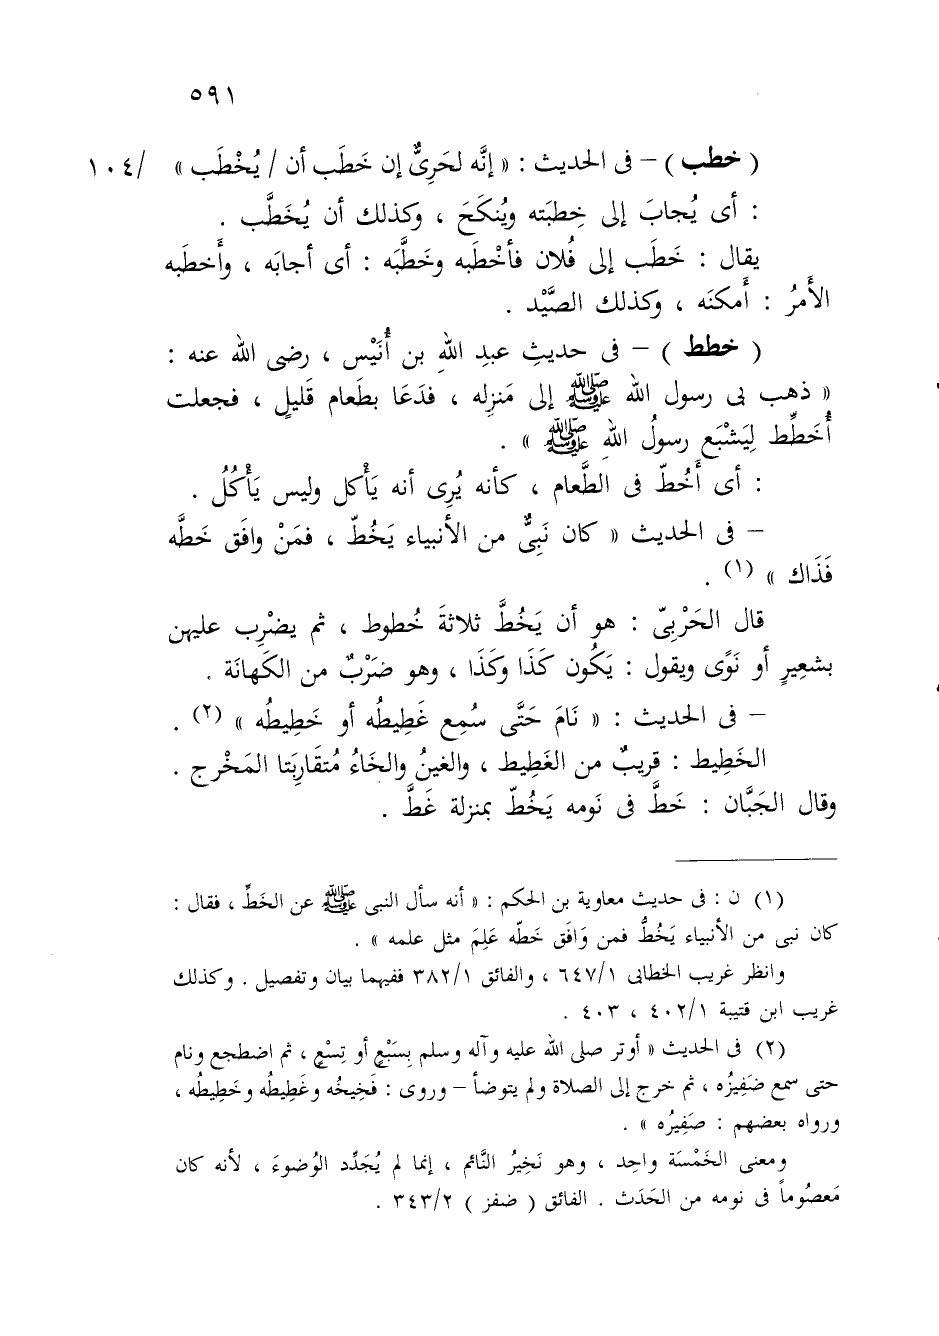 ٥٩١
( خطب ) – فى الحديث : « إنَّه لحَرِىٌّ إن خَطَب أن / يُخْطَب » /١٠٤
: أى يُجابَ إلى خِطبَته ويُنكَحَ ، وكذلك أن يُخَطَّب .
يقال : خَطَب إلى فُلان فأخْطَبه وخَطَّبَه : أى أجابَه ، وأَخطَبه
الأَمرُ : أَمكنَه ، وكذلك الصَّيْد .
( خطط ) – فى حديثِ عبدِ اللهِ بن أُنَيْس ، رضى الله عنه :
« ذهب بى رسول الله ﷺ إلى مَنزِله ، فدَعَا بطَعام قَليلٍ ، فجعلت
أُخَطِّط لِيَشْبَع رسولُ اللهِ ﷺ » .
: أى أَخُطّ فى الطَّعام ، كأنه يُرِى أنه يَأْكل وليس يَأْكُلُ .
– فى الحديث « كان نَبِىٌّ من الأنبياء يَخُطّ ، فمَنْ وافَق خَطَّه
فَذَاك » (١) .
قال الحَرْبِىّ : هو أن يَخُطَّ ثلاثةَ خُطوط ، ثم يضْرِب عليهن
بشعِيرٍ أو نَوًى ويقول : يَكُون كَذَا وكَذَا ، وهو ضَرْبٌ من الكَهانَة .
– فى الحديث : « نَامَ حَتَّى سُمِع غَطِيطُه أو خَطِيطُه » (٢) .
الخَطِيط : قريبٌ من الغَطِيط ، والغينُ والخَاءُ مُتقَارِبَتا المَخْرج .
وقال الجَبَّان : خَطَّ فى نَومه يَخُطّ بمنزلة غَطَّ .
(١) ن : فى حديث معاوية بن الحكم : « أنه سأل النبى ﷺ عن الخَطِّ ، فقال :
كان نبى من الأنبياء يَخُطُّ فمن وَافَق خَطّه عَلِمَ مثل علمه » .
وانظر غريب الخطابى ٦٤٧/١ ، والفائق ٣٨٢/١ ففيهما بيان وتفصيل . وكذلك
غريب ابن قتيبة ٤٠٢/١ ، ٤٠٣ .
(٢) فى الحديث « أوتر صلى الله عليه وآله وسلم بِسَبْعٍ أو تِسْعٍ ، ثم اضطجع ونام
حتى سمع ضَفِيزُه ، ثم خرج إلى الصلاة ولم يتوضأ – وروى : فَخِيخُه وغَطِيطُه وخَطِيطُه ،
ورواه بعضهم : صَفِيرُه » .
ومعنى الخَمْسَة واحِد ، وهو نَخِيرُ النَّائم ، إنما لم يُجَدِّد الوُضوءَ ، لأنه كان
مَعصُوماً فى نومه من الحَدَث . الفائق ( ضفز ) ٣٤٣/٢ .